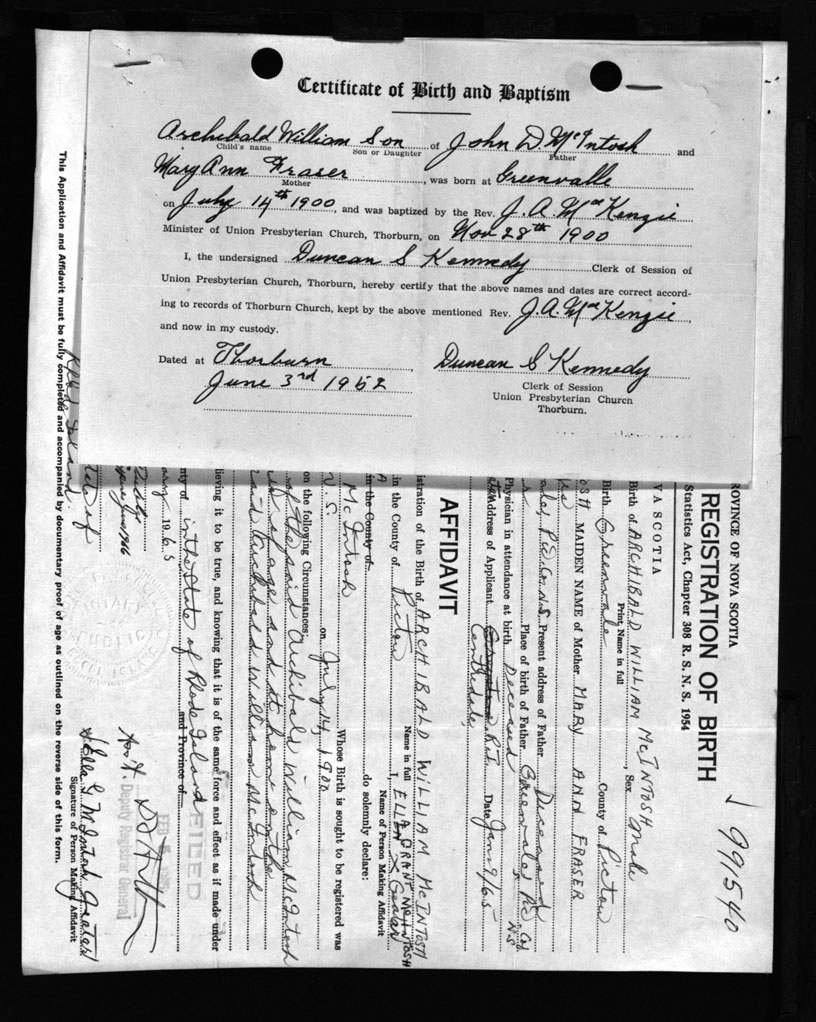 Certificate of Birth and Baptism
Archibald William Son of John D McIntosh and
Child's name Son or Daughter Father
Mary Ann Fraser, was born at Greenvalle
Mother
on July 14th 1900, and was baptized by the Rev. J. A. MacKenzie
Minister of Union Presbyterian Church, Thorburn, on Nov 28th 1900
I, the undersigned Duncan S Kennedy Clerk of Session of
Union Presbyterian Church, Thorburn, hereby certify that the above names and dates are correct accord-
ing to records of Thorburn Church, kept by the above mentioned Rev. J. A. MacKenzie,
and now in my custody.
Dated at Thorburn Duncan S Kennedy
June 3rd 1952 Clerk of Session
Union Presbyterian Church
Thorburn.
√ 991540
ROVINCE OF NOVA SCOTIA
REGISTRATION OF BIRTH
Statistics Act, Chapter 308 R. S. N. S. 1954
VA SCOTIA
Birth of ARCHIBALD WILLIAM McINTOSH, Sex Male
Print Name in full
Birth Greenvale County of Pictou
OSH MAIDEN NAME of Mother MARY ANN FRASER
Present address of Father Deceased
Place of birth of Father Greenvale, Pic Co
NS
Physician in attendance at birth Deceased
Address of Applicant R.I. Date Jan 9/65
Centredale
AFFIDAVIT
istration of the Birth of ARCHIBALD WILLIAM McINTOSH
Name in full
in the County of Pictou I, ELLEN
GRANT McINTOSH
Name of Person Making Affidavit
in the County of do solemnly declare:
McIntosh Whose Birth is sought to be registered was
on July 14, 1900
on the following Circumstances:
of the said Archibald William McIntosh
of age and at home on the
said Archibald William McIntosh
lieving it to be true, and knowing that it is of the same force and effect as if made under
nty of in the State of Rhode Island and Province of
1965
FILED
FEB
Deputy Registrar General
Signature of Person Making Affidavit
Rhode Island
State of
This Application and Affidavit must be fully completed and accompanied by documentary proof of age as outlined on the reverse side of this form.